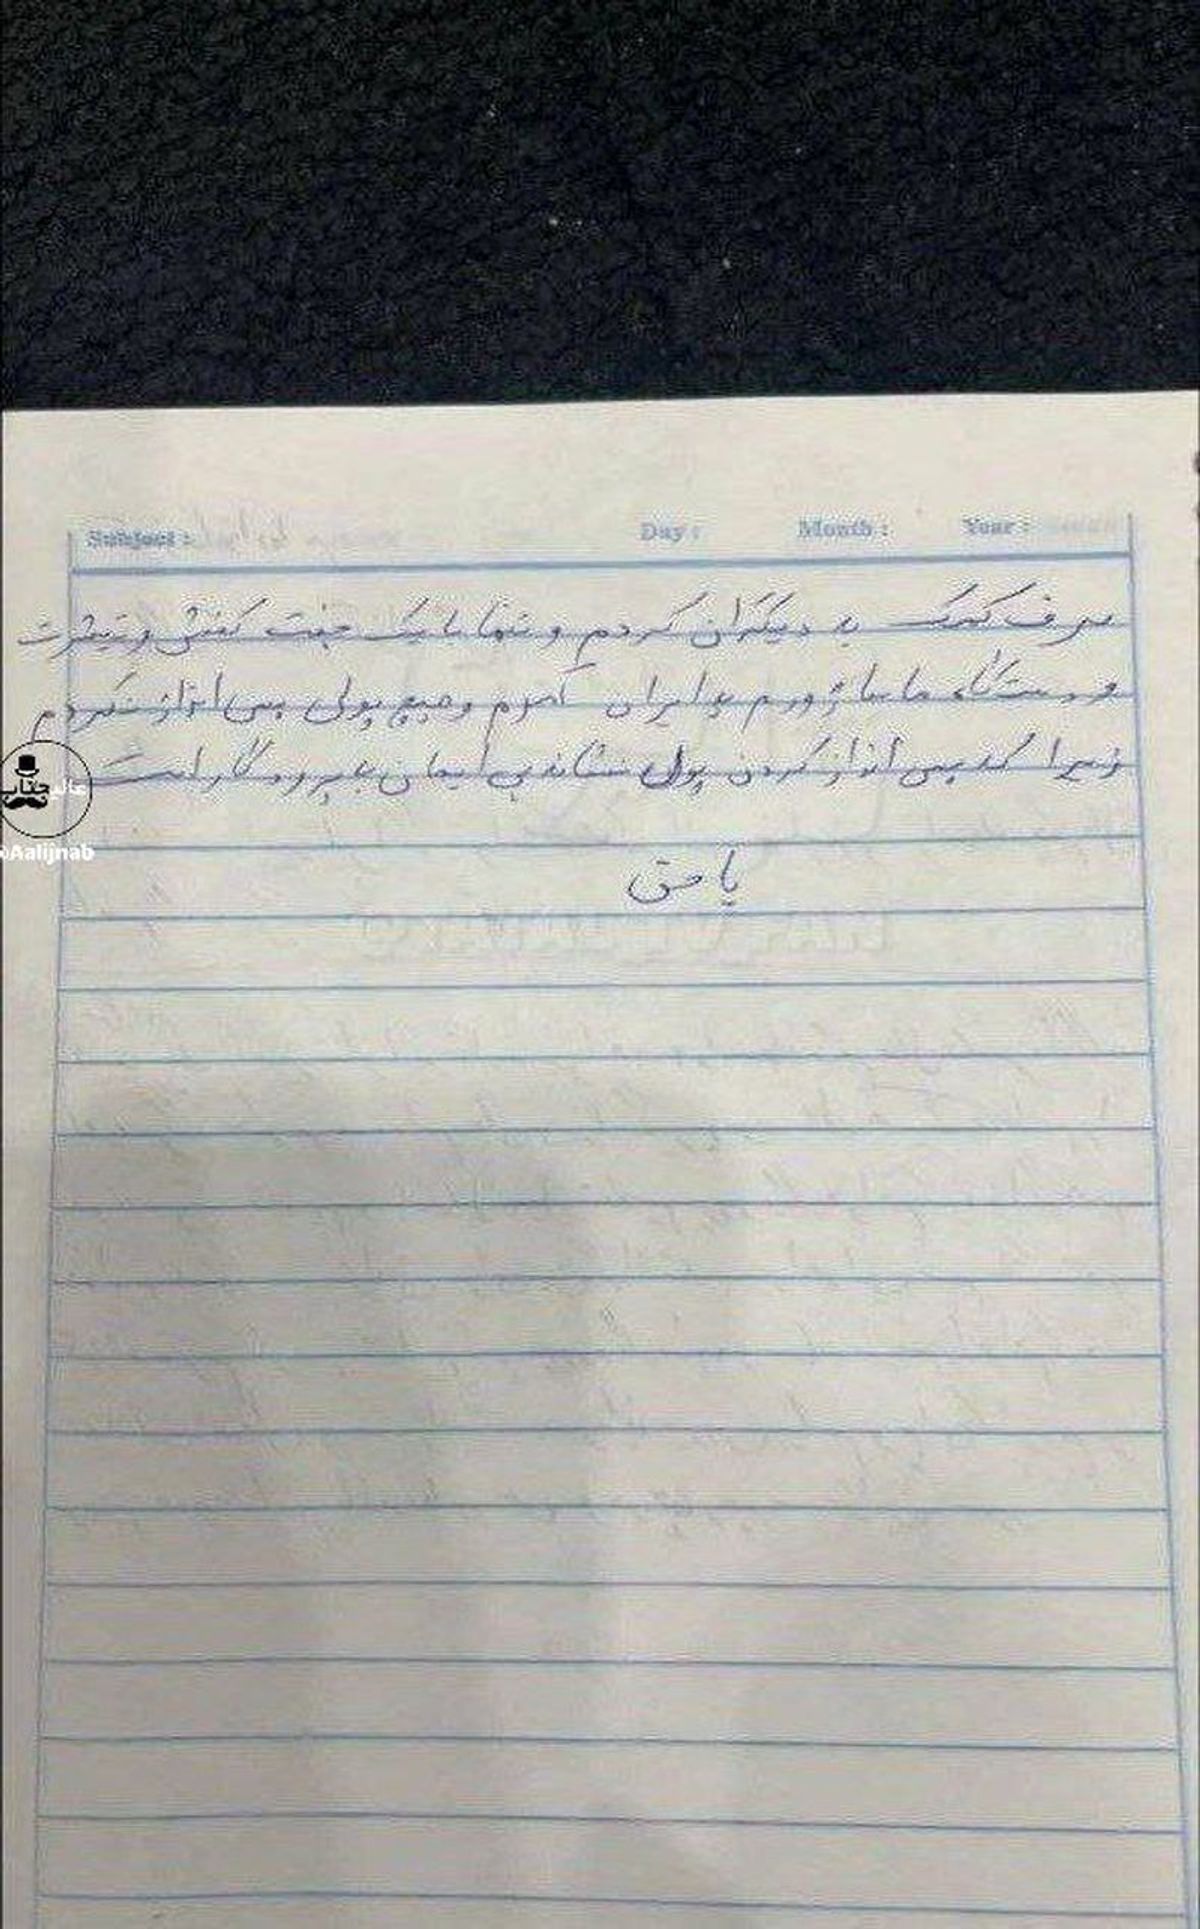 Subject : Day : Month : Year :
صرف کمک به دیگران کردم و تنها با یک جفت کفش و تیشرت
و دستگاه ماساژورم به ایران آمدم و هیچ پولی پس انداز نکردم
زیرا که پس انداز کردن پول نشانه بی ایمان به پروردگار است
یا حق
عالیجناب
@Aalijnab